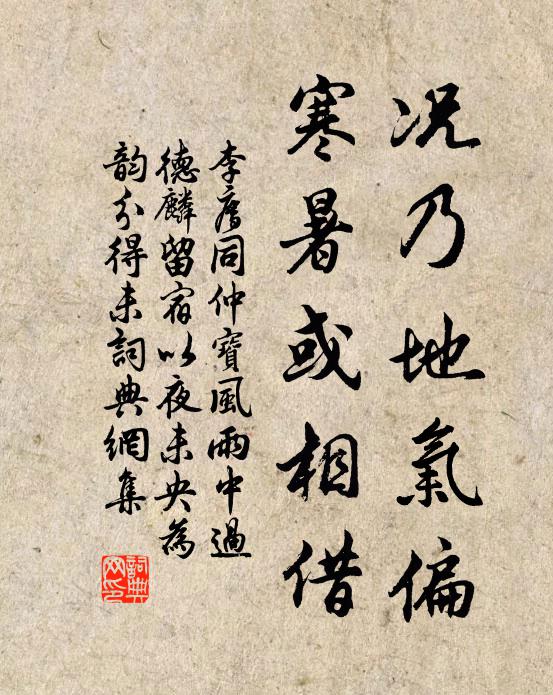 况乃地氣偏
寒暑或相借
李廌同仲寶風雨中過
德麟留宿以夜未央為
韵分得未詞典網集
詞典網印